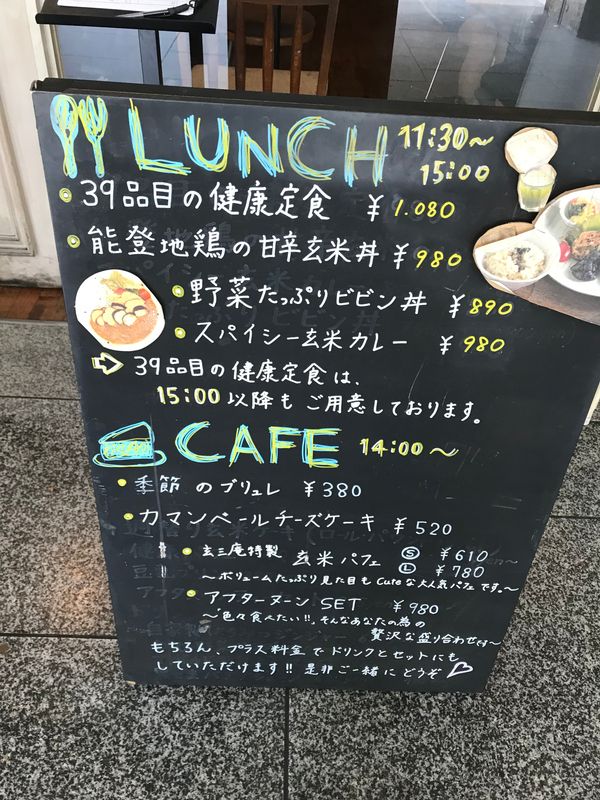 LUNCH 11:30～
15:00
39品目の健康定食 ¥1.080
能登地鶏の甘辛玄米丼 ¥980
野菜たっぷりビビン丼 ¥890
スパイシー玄米カレー ¥980
⇨ 39品目の健康定食は、
15:00以降もご用意しております。
CAFE 14:00～
季節のブリュレ ¥380
カマンベールチーズケーキ ¥520
玄三庵特製 玄米パフェ Ⓢ ¥610
Ⓛ ¥780
～ボリュームたっぷり見た目もcuteな大人気パフェです。～
アフターヌーンSET ¥980
～色々食べたい!!、そんなあなたの為の
贅沢な盛り合わせです～
もちろん、プラス料金でドリンクとセットにも
していただけます!! 是非ご一緒にどうぞ♡